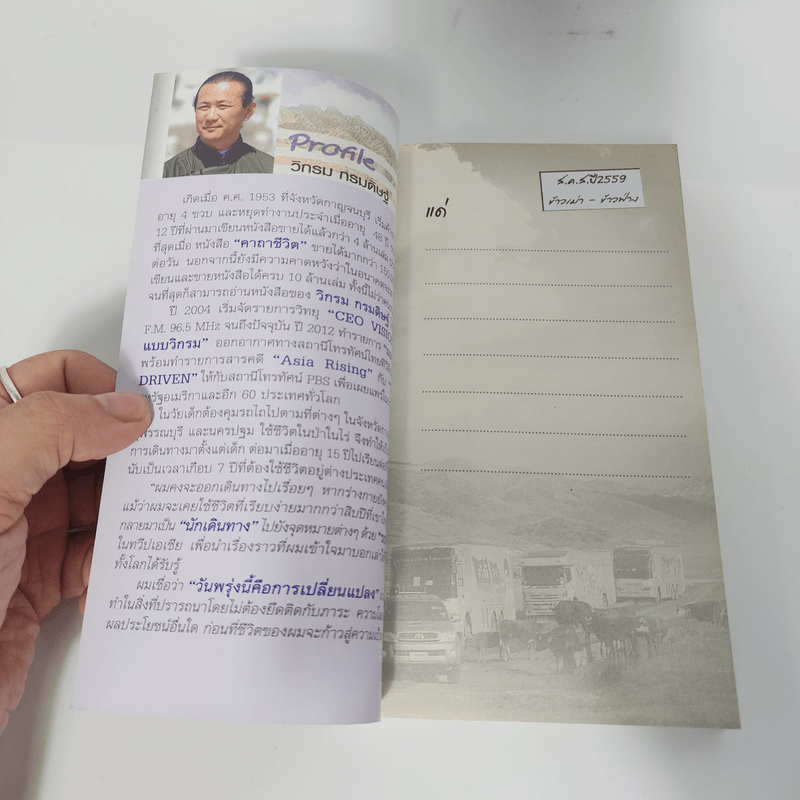 Profile
วิกรม กรมดิษฐ์
เกิดเมื่อ ค.ศ. 1953 ที่จังหวัดกาญจนบุรี เริ่มค้า
อายุ 4 ขวบ และหยุดทำงานประจำเมื่ออายุ 48 ปี
12 ปีที่ผ่านมาเขียนหนังสือขายได้แล้วกว่า 4 ล้านเล่ม
ที่สุดเมื่อ หนังสือ "คาถาชีวิต" ขายได้มากกว่า
ต่อวัน นอกจากนี้ยังมีความคาดหวังว่าในอนาคต
เขียนและขายหนังสือได้ครบ 10 ล้านเล่ม ทั้งนี้ไม่ว่า
จนที่สุดก็สามารถอ่านหนังสือของ วิกรม กรมดิษฐ์
ปี 2004 เริ่มจัดรายการวิทยุ "CEO
F.M. 96.5 MHz จนถึงปัจจุบัน ปี 2012 ทำรายการ
แบบวิกรม" ออกอากาศทางสถานีโทรทัศน์ไทย
พร้อมทำรายการสารคดี "Asia Rising" กับ
DRIVEN" ให้กับสถานีโทรทัศน์ PBS เพื่อเผยแพร่
หรัฐอเมริกาและอีก 60 ประเทศทั่วโลก
ในวัยเด็กต้องคุมรถไถไปตามที่ต่างๆ ในจังหวัด
พรรณบุรี และนครปฐม ใช้ชีวิตในป่าในไร่ จึงทำให้
การเดินทางมาตั้งแต่เด็ก ต่อมาเมื่ออายุ 15 ปีไปเรียนต่อ
นับเป็นเวลาเกือบ 7 ปีที่ต้องใช้ชีวิตอยู่ต่างประเทศ
"ผมคงจะออกเดินทางไปเรื่อยๆ หากร่างกายยัง
แม้ว่าผมจะเคยใช้ชีวิตที่เรียบง่ายมากกว่าสิบปีที่เขา
กลายมาเป็น "นักเดินทาง" ไปยังจุดหมายต่างๆ ด้วย
ในทวีปเอเชีย เพื่อนำเรื่องราวที่ผมเข้าใจมาบอกเล่า
ทั้งโลกได้รับรู้
ผมเชื่อว่า "วันพรุ่งนี้คือการเปลี่ยนแปลง"
ทำในสิ่งที่ปรารถนาโดยไม่ต้องยึดติดกับภาระ
ผลประโยชน์อื่นใด ก่อนที่ชีวิตของผมจะก้าวสู่ความ
ส.ค.ส.ปี2559
ข้าวเม่า - ข้าวฟ่าง
แด่